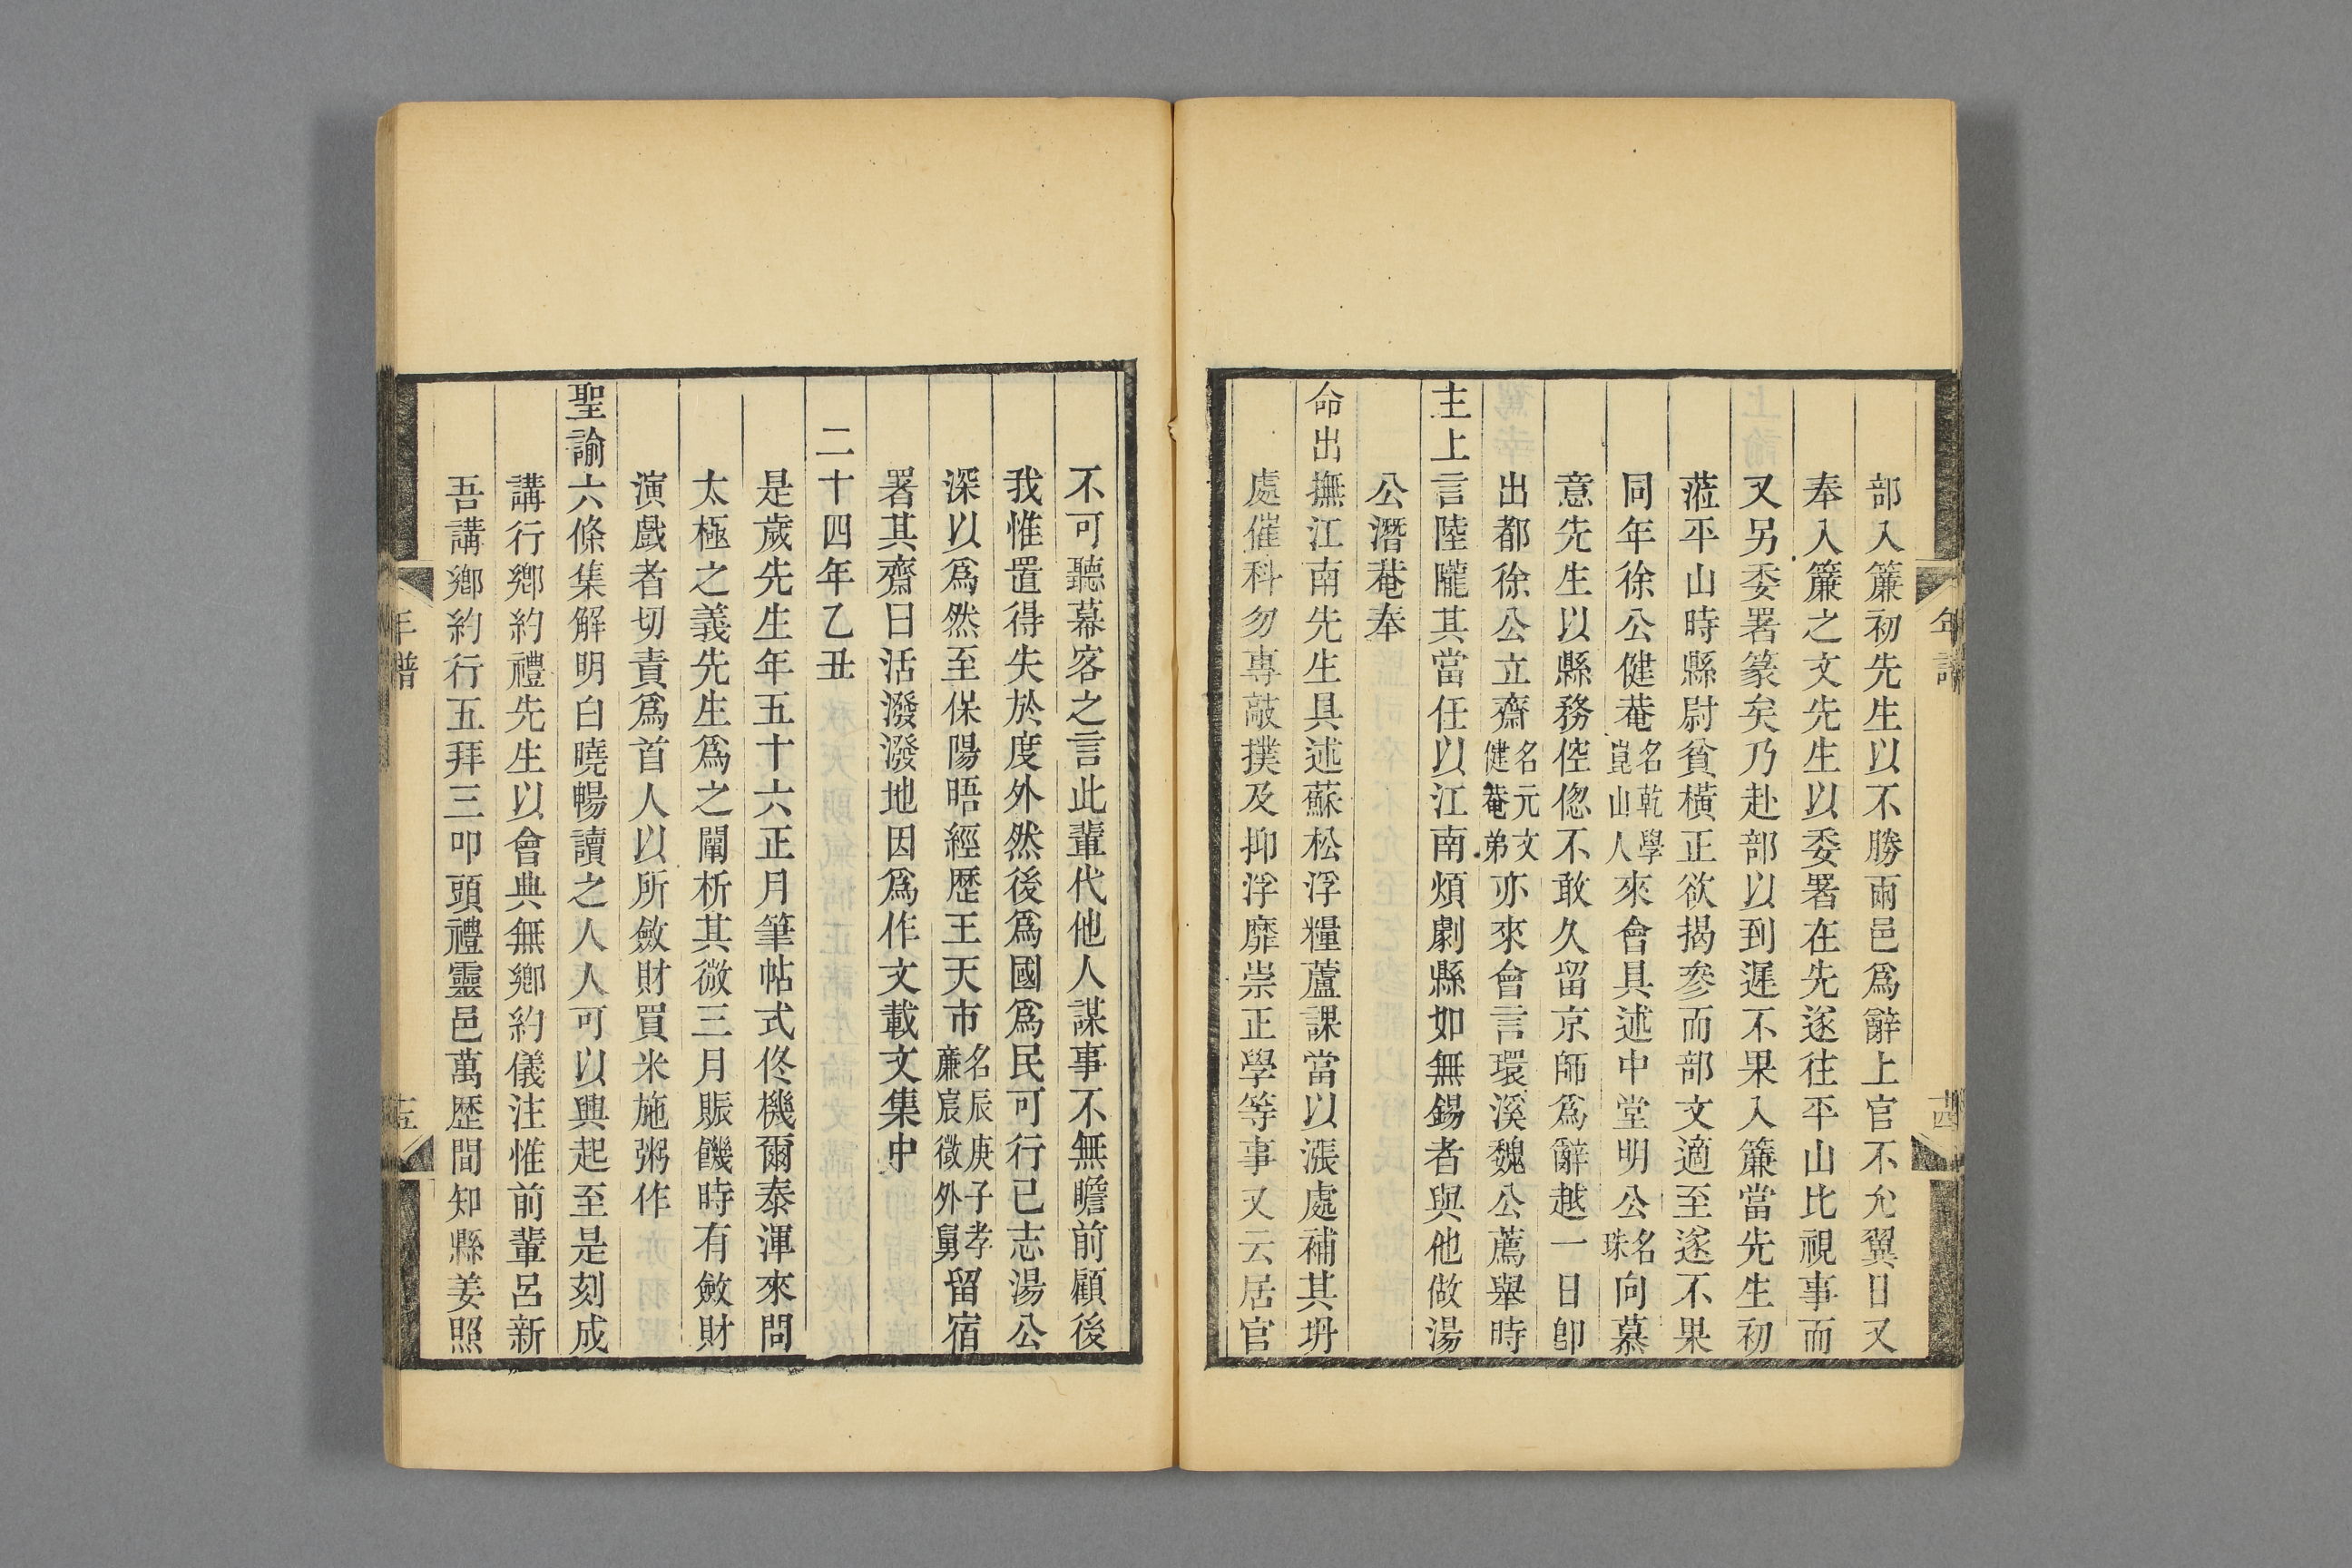 年譜
十四
部入簾初先生以不勝兩邑爲辭上官不允翼日又
奉入簾之文先生以委署在先遂往平山比視事而
又另委署篆矣乃赴部以到遲不果入簾當先生初
蒞平山時縣尉貧橫正欲揭參而部文適至遂不果
同年徐公健菴名乾學崑山人來會具述中堂明公名珠向慕
意先生以縣務倥偬不敢久留京師爲辭越一日卽
出都徐公立齋名元文健菴弟亦來會言環溪魏公薦舉時
主上言陸隴其當任以江南煩劇縣如無錫者與他做湯
公潛菴奉
命出撫江南先生具述蘇松浮糧蘆課當以漲處補其坍
處催科勿專敲撲及抑浮靡崇正學等事又云居官
不可聽幕客之言此輩代他人謀事不無瞻前顧後
我惟置得失於度外然後爲國爲民可行已志湯公
深以爲然至保陽晤經歷王天市名辰庚子孝廉宸徵外舅留宿
署其齋曰活潑潑地因爲作文載文集中
二十四年乙丑
是歲先生年五十六正月筆帖式佟機爾泰渾來問
太極之義先生爲之闡析其微三月賑饑時有斂財
演戲者切責爲首人以所斂財買米施粥作
聖諭六條集解明白曉暢讀之人人可以興起至是刻成
講行鄉約禮先生以會典無鄉約儀注惟前輩呂新
吾講鄉約行五拜三叩頭禮靈邑萬歷間知縣姜照
年譜
十五